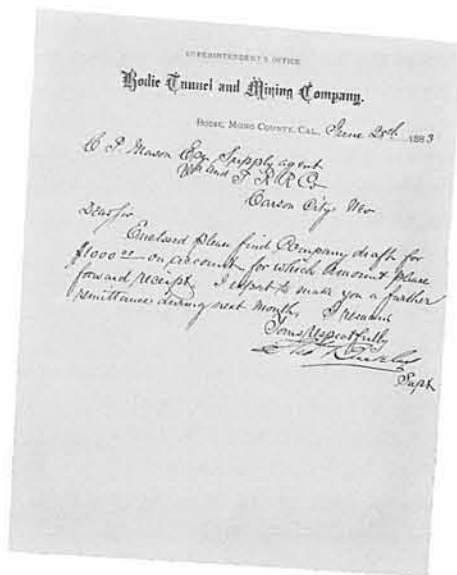 SUPERINTENDENT'S OFFICE
Bodie Tunnel and Mining Company.
BODIE, MONO COUNTY, CAL., June 20th 1883
C P. Mason Esq Supply agent
and T R R Co
Carson City Nev
Dear Sir
Enclosed please find Company draft for
$1000 on account for which amount please
forward receipt. I expect to make you a further
remittance during next month. I remain
Yours Respectfully
Supt